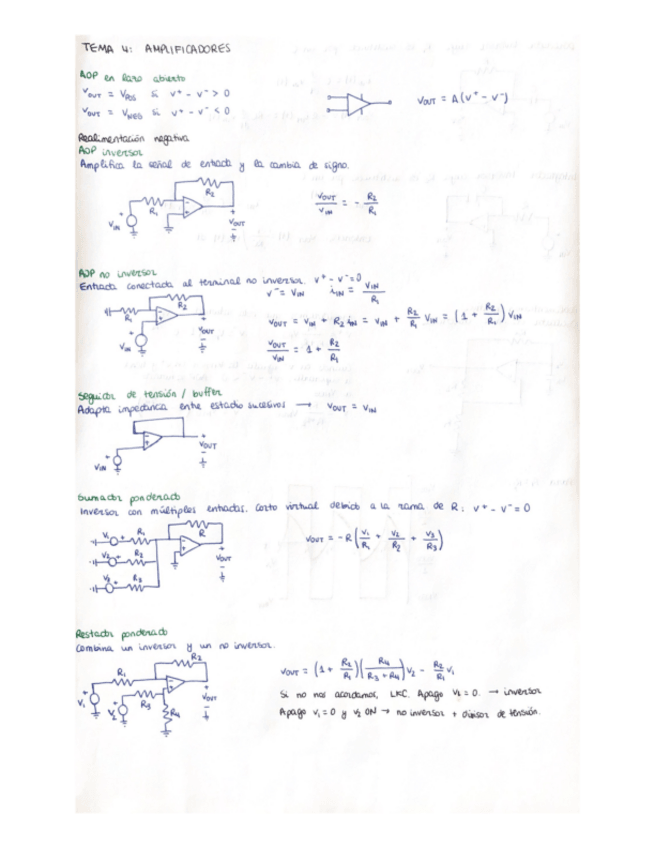 TEMA 4: AMPLIFICADORES
AOP en lazo abierto
VOUT = VPOS si v+ - v- > 0
VOUT = VNEG si v+ - v- < 0
VOUT = A(v+ - v-)
Realimentación negativa
AOP inversor
Amplifica la señal de entrada y la cambia de signo.
R2
R1
VIN
VOUT
VOUT/VIN = - R2/R1
AOP no inversor
Entrada conectada al terminal no inversor. v+ - v- = 0
v- = VIN iIN = VIN/R1
R2
R1
VIN
VOUT
VOUT = VIN + R2 iIN = VIN + R2/R1 VIN = (1 + R2/R1) VIN
VOUT/VIN = 1 + R2/R1
Seguidor de tensión / buffer
Adapta impedancia entre estadio sucesivos → VOUT = VIN
VIN
VOUT
Sumador ponderado
Inversor con múltiples entradas. Corto virtual debido a la rama de R: v+ - v- = 0
V1 R1
V2 R2
V3 R3
R
VOUT
VOUT = -R (V1/R1 + V2/R2 + V3/R3)
Restador ponderado
Combina un inversor y un no inversor.
R2
R1
R3
R4
V1
V2
VOUT
VOUT = (1 + R2/R1)(R4/(R3 + R4)) V2 - R2/R1 V1
Si no nos acordamos, LKC. Apago V2 = 0. → inversor
Apago V1 = 0 y V2 ON → no inversor + divisor de tensión.